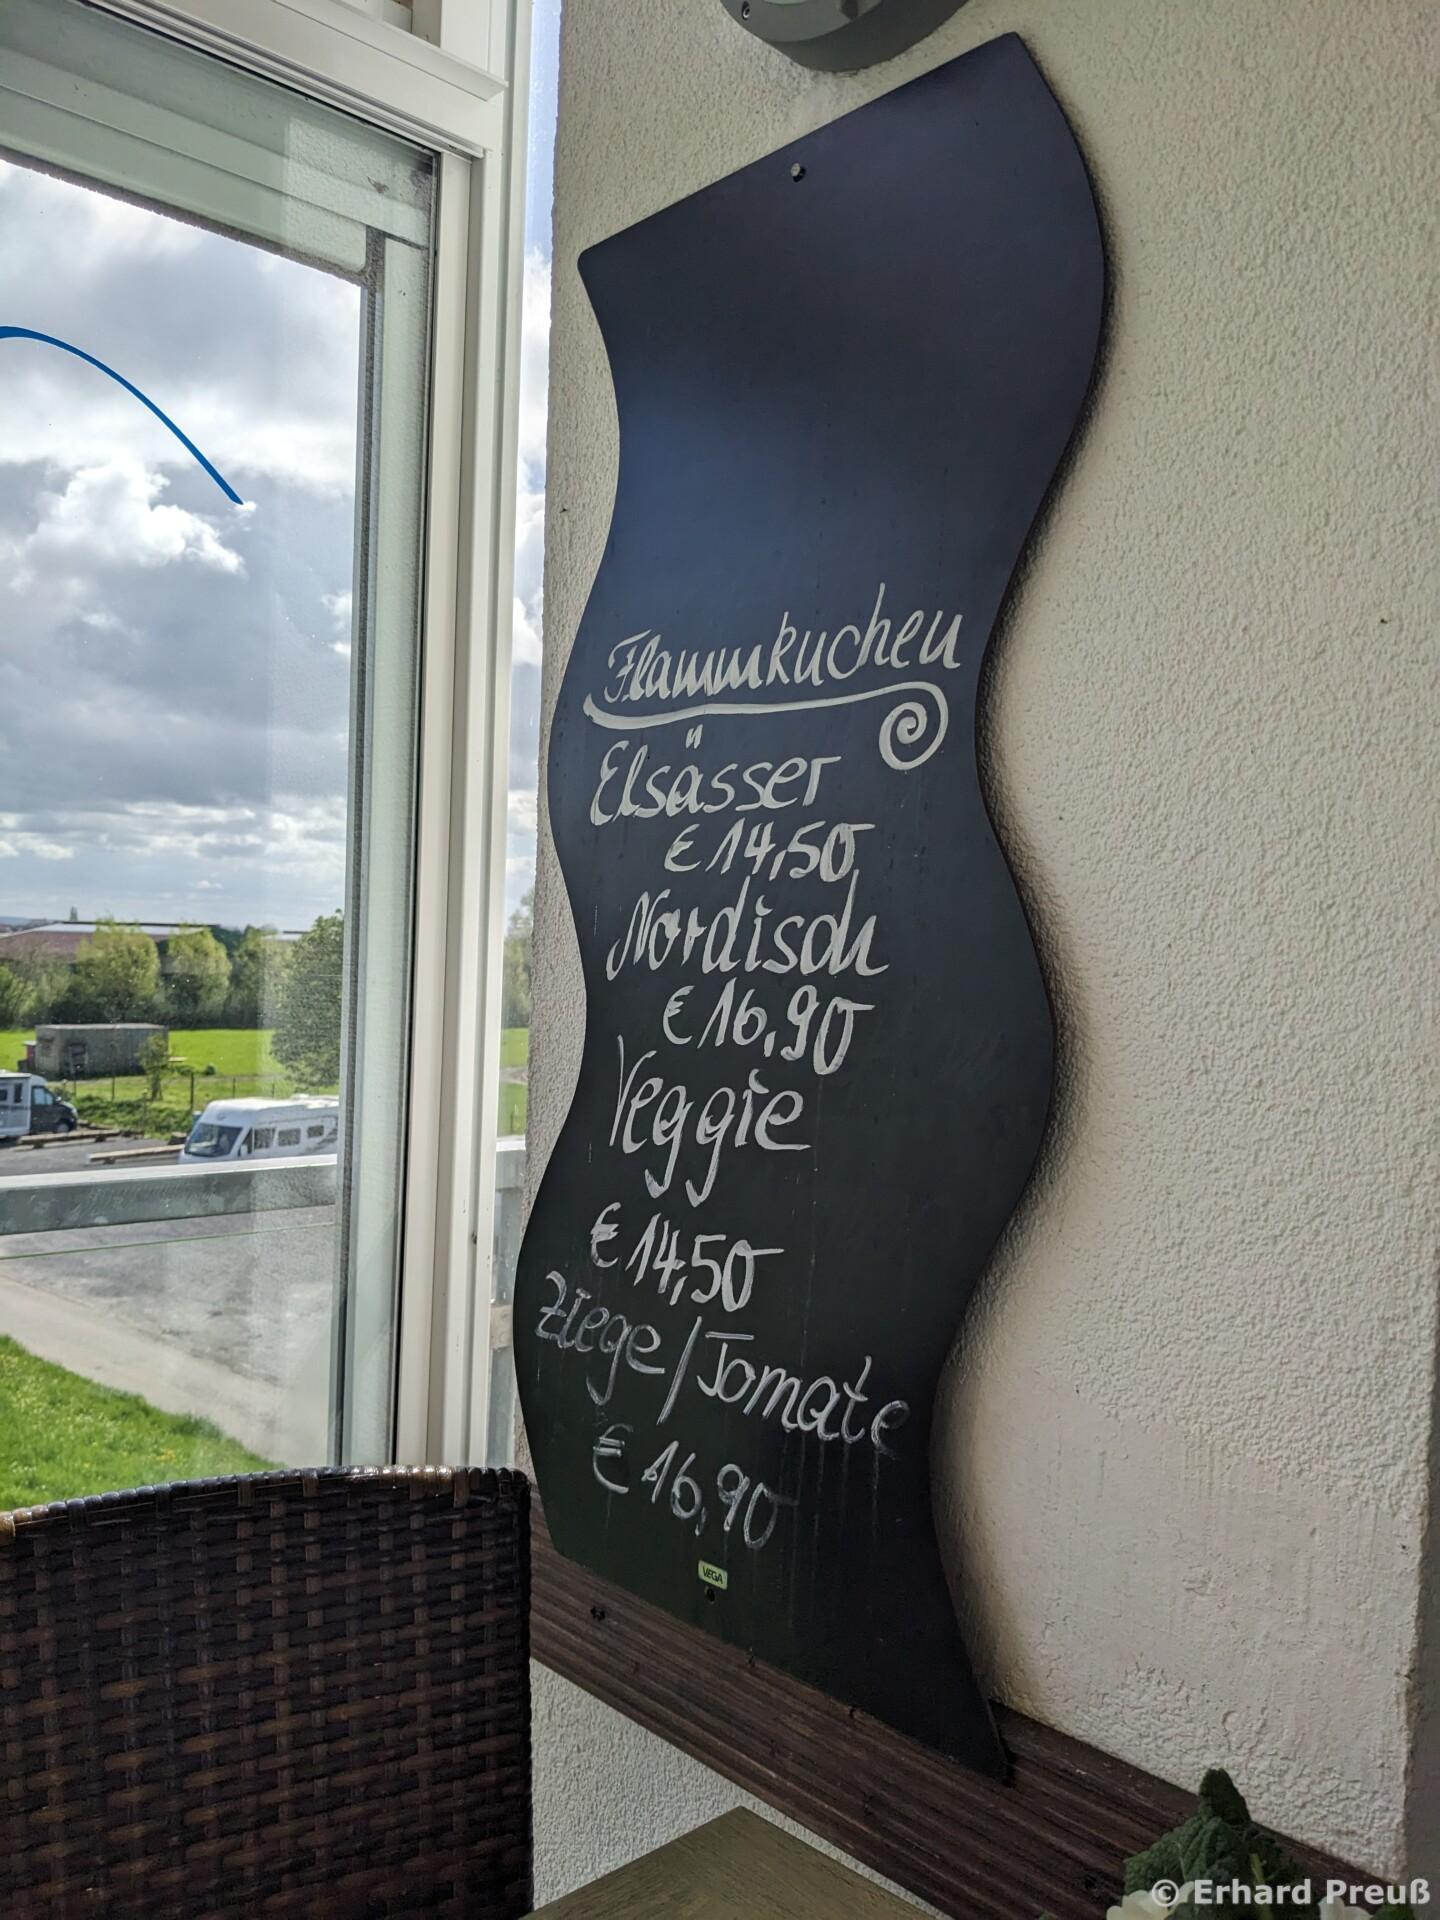 Flammkuchen
Elsässer
€ 14,50
Nordisch
€ 16,90
Veggie
€ 14,50
Ziege/Tomate
€ 16,90
VEGA
© Erhard Preuß